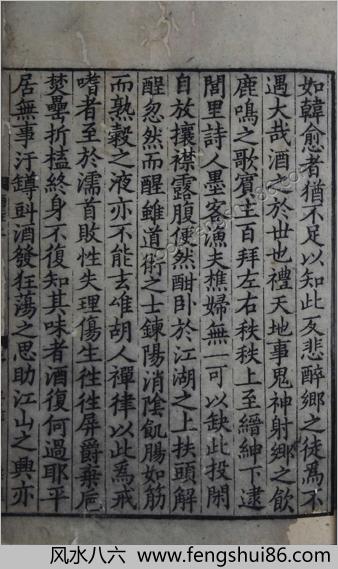 如韓愈者猶不足以知此反悲醉鄉之徒爲不
遇大哉酒之於世也禮天地事鬼神射鄉之飲
鹿鳴之歌賓主百拜左右秩秩上至縉紳下逮
閭里詩人墨客漁夫樵婦無一可以缺此投閑
自放攘襟露腹便然酣卧於江湖之上扶頭解
酲忽然而醒雖道術之士鍊陽消陰飢腸如筋
而熟穀之液亦不能去惟胡人禪律以此爲戒
嗜者至於濡首敗性失理傷生徃徃屏爵棄卮
焚罍折榼終身不復知其味者酒復何過耶平
居無事汙罇斟酒發狂蕩之思助江山之興亦
风水八六 www.fengshui86.com